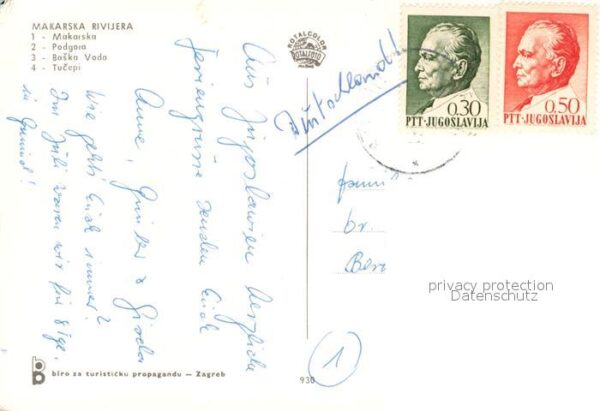 MAKARSKA RIVIJERA
1 - Makarska
2 - Podgora
3 - Baška Voda
4 - Tučepi
ROTALCOLOR
ROTALFOTO
0.30
PTT-JUGOSLAVIJA
0.50
PTT-JUGOSLAVIJA
Deutschland!
Aus Jugoslawien herzliche
Feriengrüsse senden Euch
Anne, Günter &
Wie geht's Euch immer?
Im Juli waren wir für 8 Tge.
in Gmünd!
br.
Ber
privacy protection
Datenschutz
1
biro za turističku propagandu — Zagreb
930